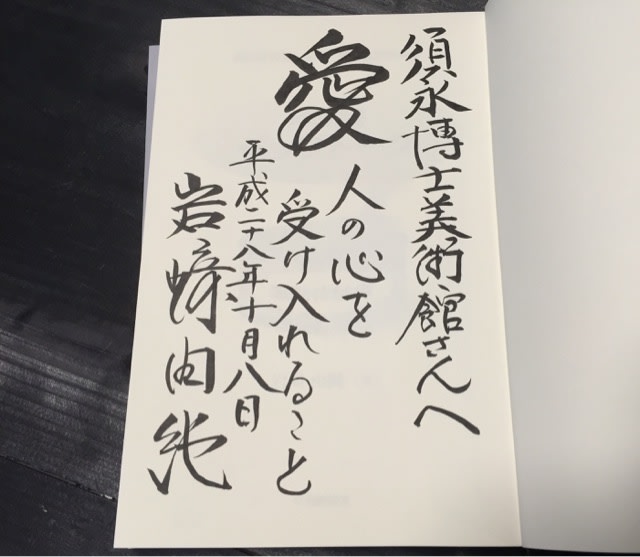 須永博士美術館さんへ
愛
人の心を
受け入れること
平成二十八年、十月八日
岩﨑由純